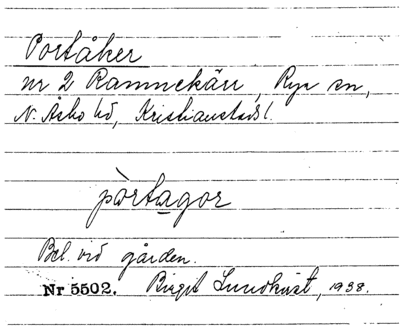 Portåker
nr 2 Ramnekärr, Rya sn,
N. Åsbo hd, Kristianstads l.
pòrtagor
Bel. vid gården.
Nr 5502. Birgit Lundkvist, 1938.